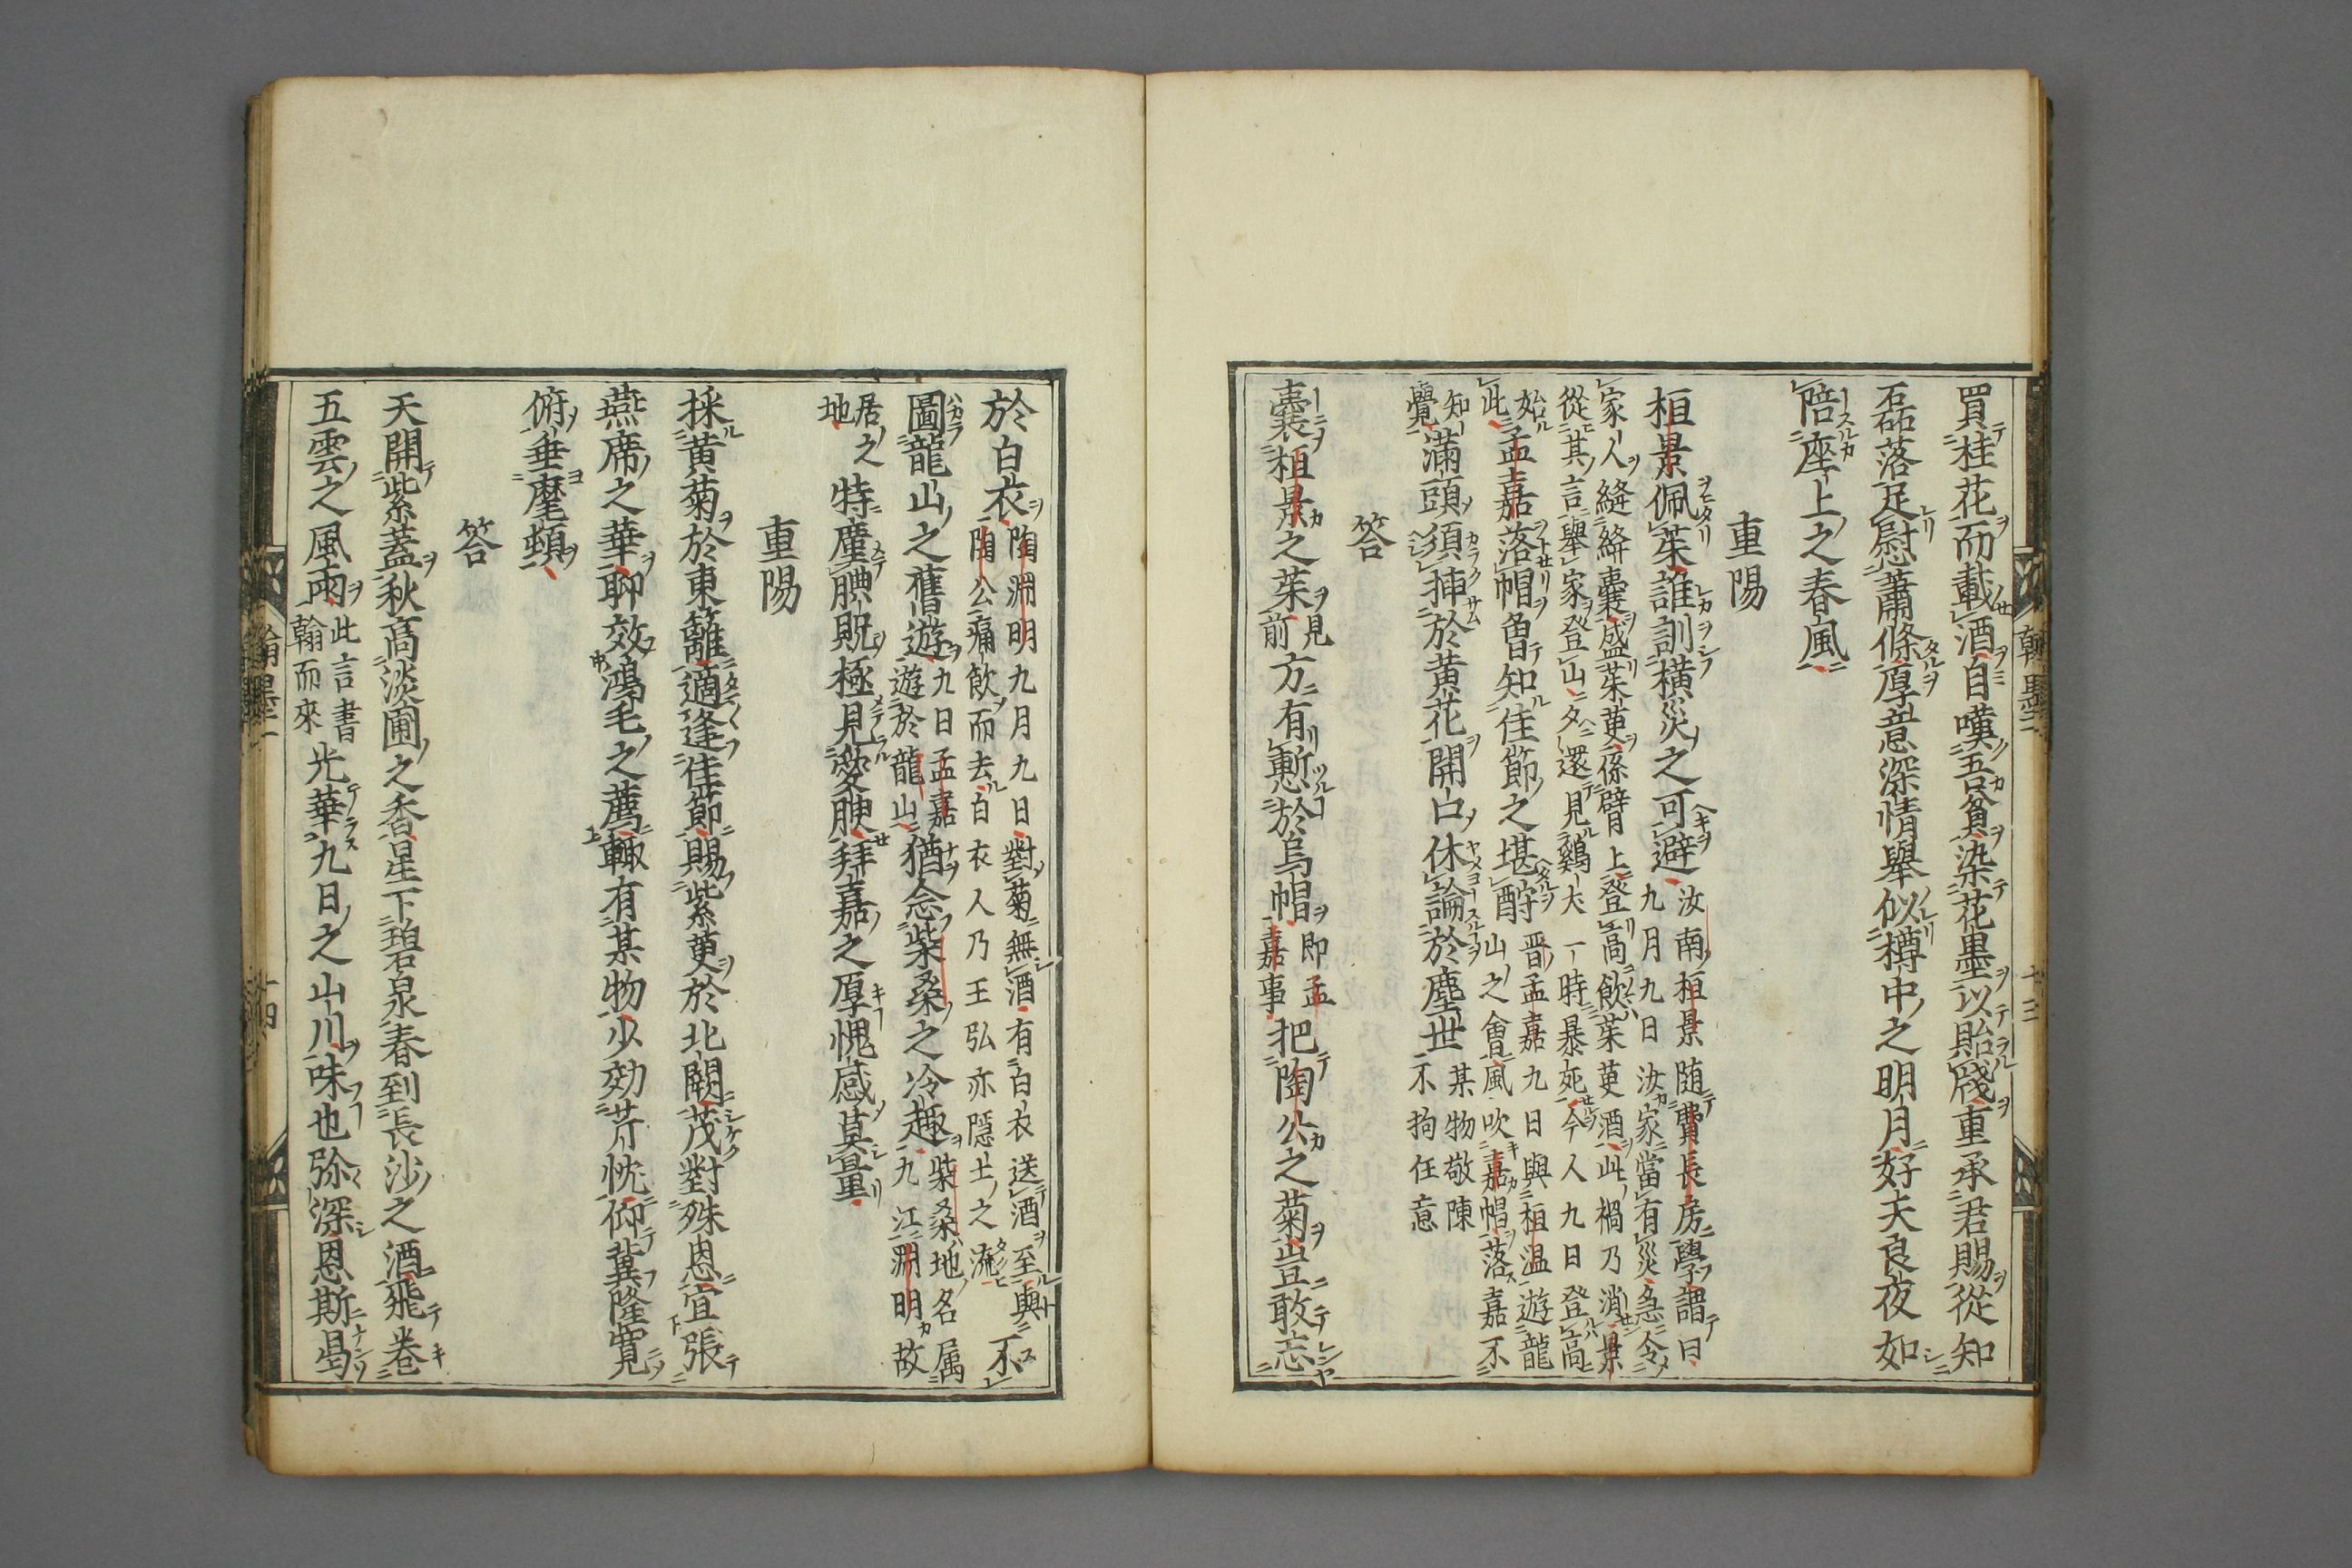 買桂花而載酒自嘆吾負染花墨以貽牋重承君賜從知
磊落足慰蕭條厚意深情舉似樽中之明月好天良夜如
陪座上之春風
重陽
桓景佩茱誰訓横災之可避
汝南桓景随費長房學謂曰
九月九日汝家當有災急令
家人縫絳囊盛茱萸係臂上登高飲茱萸酒此禍乃消景
從其言舉家登山夕還見鷄犬一時暴死今人九日登高
始此孟嘉落帽魯知佳節之堪酧
晋孟嘉九日與桓温遊龍
山之會風吹嘉帽落嘉不
知覺滿頭須挿於黄花開口休論於塵世
某物敬陳
不拘任意
答
囊桓景之茱見前方有慙於烏帽即孟嘉事把陶公之菊豈敢忘
於白衣
陶淵明九月九日對菊無酒有白衣送酒至輿不
陶公痛飲而去白衣人乃王弘亦隱士之流
圖龍山之舊遊
九日孟嘉
遊於龍山
猶念柴桑之冷趣
柴桑地名属
九江淵明故
居之地特塵腆貺極見愛腴拜嘉之厚愧感莫量
重陽
採黄菊於東籬適逢佳節賜紫萸於北闕茂對殊恩宜張
燕席之華聊效鴻毛之薦輙有某物少効芹忱仰冀隆寛
俯垂麾頓
答
天開紫蓋秋高淡圃之香星下碧泉春到長沙之酒飛卷
五雲之風雨
此言書
翰而來
光華九日之山川味也弥深恩斯曷
翰墨
十三
翰墨
十四